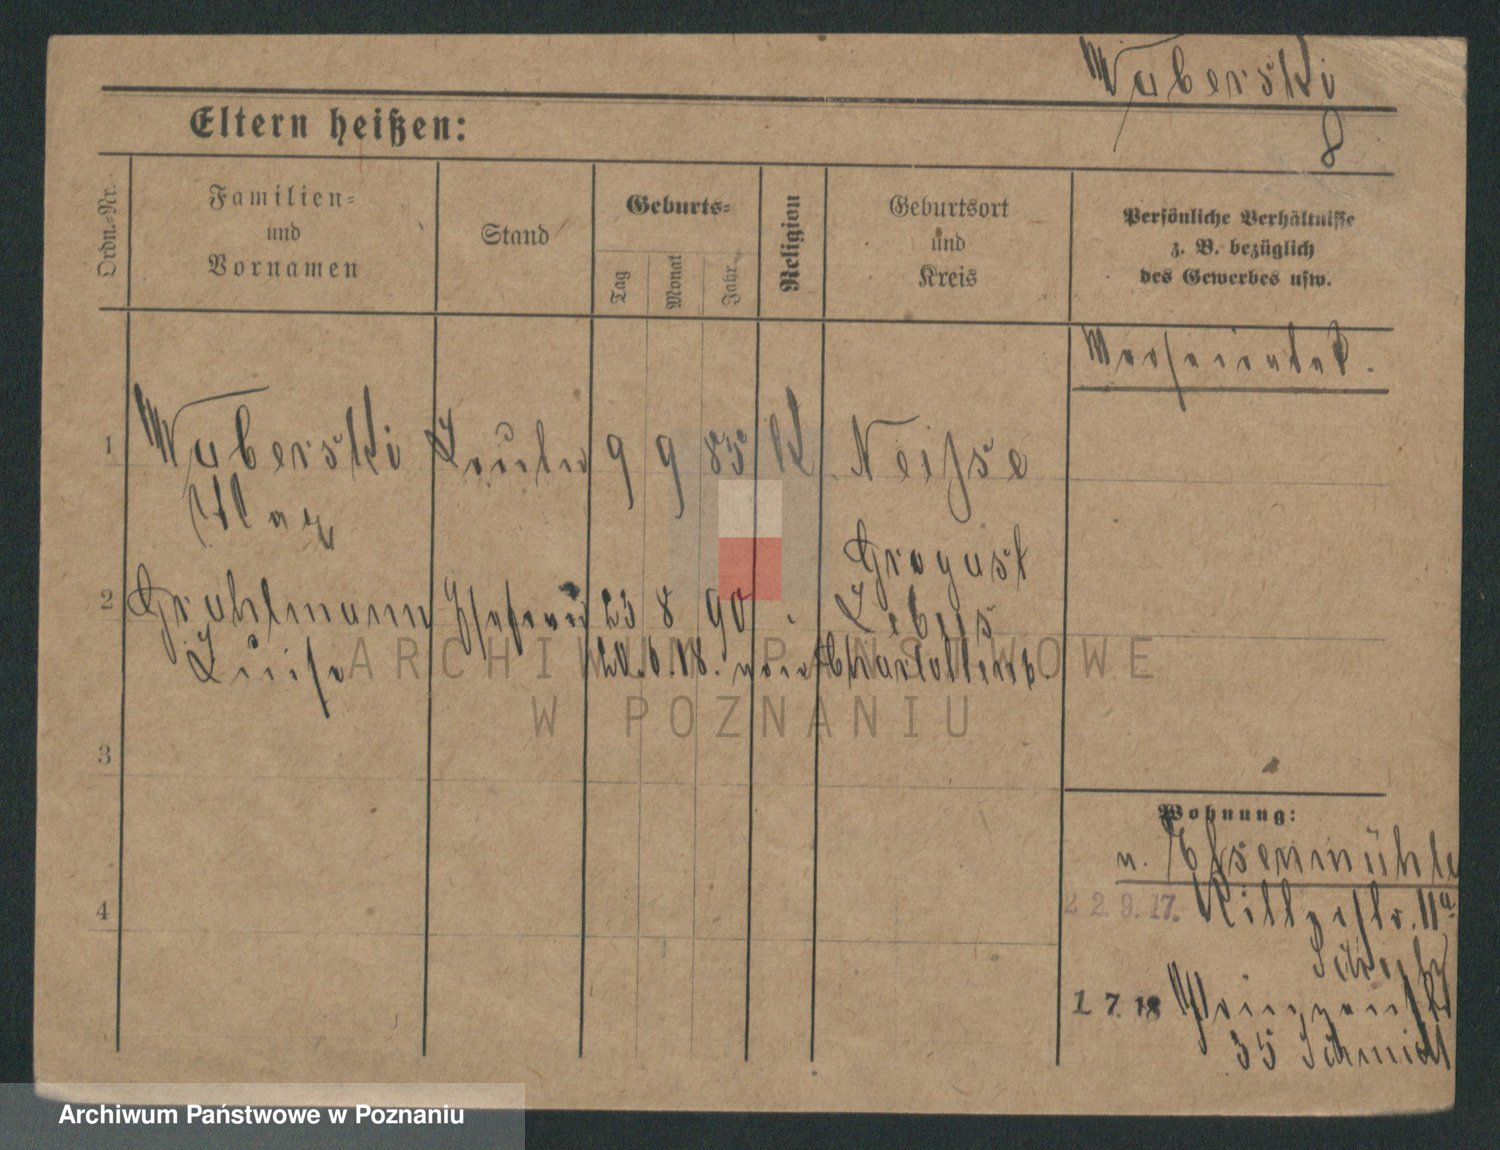 Waberski
8
Eltern heißen:
Ordn.-Nr.
Familien-
und
Vornamen
Stand
Geburts-
Tag
Monat
Jahr
Religion
Geburtsort
und
Kreis
Persönliche Verhältnisse
z. B. bezüglich
des Gewerbes usw.
1
Waberski
9 9 85 K
Neisse
Max
2
Grahlmann
23 8 90
Lebus
Luise
20.6.18. Charlottenb.
3
4
Wohnung:
n. Elsenmühle
22.9.17.
11a
1 7. 18
35 Schmidt
ARCHIWUM PAŃSTWOWE
W POZNANIU
Archiwum Państwowe w Poznaniu